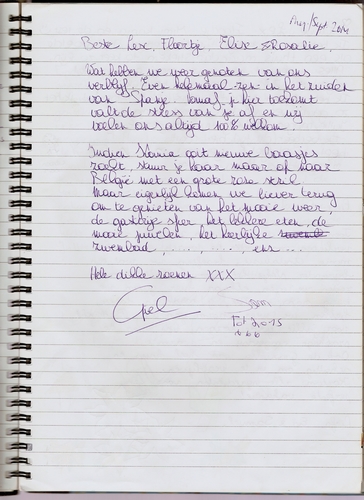 Aug/Sept 2014
Beste Lex, Floortje, Elise & Rosalie.
Wat hebben we weer genoten van ons
verblijf. Even helemaal zen in het zuiden
van Spanje. Vanaf je hier toekomt
valt de stress van je af en wij
voelen ons altijd 100% welkom.
Indien Stania ooit nieuwe baasjes
zoekt, stuur je haar maar op naar
België met een grote roze strik.
Maar eigenlijk komen we liever terug
om te genieten van het mooie weer,
de gastvrije sfeer, het lekkere eten, de
mooie tuinen, het heerlijke
zwembad, ........ enz ...
Hele dikke zoenen XXX
Tot 2015